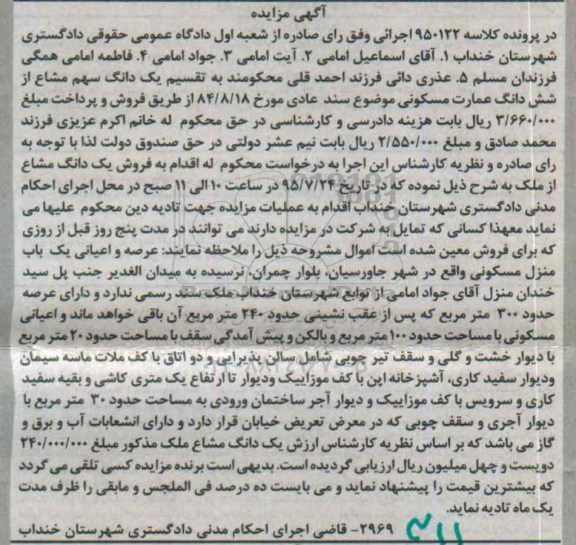 آگهی مزایده
در پرونده کلاسه ۹۵۰۱۲۲ اجرائی وفق رای صادره از شعبه اول دادگاه عمومی حقوقی دادگستری
شهرستان خنداب ۱. آقای اسماعیل امامی ۲. آیت امامی ۳. جواد امامی ۴. فاطمه امامی همگی
فرزندان مسلم ۵. عذری دائی فرزند احمد قلی محکومند به تقسیم یک دانگ سهم مشاع از
شش دانگ عمارت مسکونی موضوع سند عادی مورخ ۸۴/۸/۱۸ از طریق فروش و پرداخت مبلغ
۳/۶۶۰/۰۰۰ ریال بابت هزینه دادرسی و کارشناسی در حق محکوم له خانم اکرم عزیزی فرزند
محمد صادق و مبلغ ۲/۵۵۰/۰۰۰ ریال بابت نیم عشر دولتی در حق صندوق دولت لذا با توجه به
رای صادره و نظریه کارشناس این اجرا به درخواست محکوم له اقدام به فروش یک دانگ مشاع
از ملک به شرح ذیل نموده که در تاریخ ۹۵/۷/۲۴ در ساعت ۱۰ الی ۱۱ صبح در محل اجرای احکام
مدنی دادگستری شهرستان خنداب اقدام به عملیات مزایده جهت تادیه دین محکوم علیها می
نماید معهذا کسانی که تمایل به شرکت در مزایده دارند می توانند در مدت پنج روز قبل از روزی
که برای فروش معین شده است اموال مشروحه ذیل را ملاحظه نمایند: عرصه و اعیانی یک باب
منزل مسکونی واقع در شهر جاورسیان، بلوار چمران، نرسیده به میدان الغدیر جنب پل سید
خندان منزل آقای جواد امامی از توابع شهرستان خنداب ملک سند رسمی ندارد و دارای عرصه
حدود ۳۰۰ متر مربع که پس از عقب نشینی حدود ۲۴۰ متر مربع آن باقی خواهد ماند و اعیانی
مسکونی با مساحت حدود ۱۰۰ متر مربع و بالکن و پیش آمدگی سقف با مساحت حدود ۲۰ متر مربع
با دیوار خشت و گلی و سقف تیر چوبی شامل سالن پذیرایی و دو اتاق با کف ملات ماسه سیمان
ودیوار سفید کاری، آشپزخانه اپن با کف موزاییک ودیوار تا ارتفاع یک متری کاشی و بقیه سفید
کاری و سرویس با کف موزاییک و دیوار آجر ساختمان ورودی به مساحت حدود ۳۰ متر مربع با
دیوار آجری و سقف چوبی که در معرض تعریض خیابان قرار دارد و دارای انشعابات آب و برق و
گاز می باشد که بر اساس نظریه کارشناس ارزش یک دانگ مشاع ملک مذکور مبلغ ۲۴۰/۰۰۰/۰۰۰
دویست و چهل میلیون ریال ارزیابی گردیده است. بدیهی است برنده مزایده کسی تلقی می گردد
که بیشترین قیمت را پیشنهاد نماید و می بایست ده درصد فی الملجس و مابقی را ظرف مدت
یک ماه تادیه نماید.
۲۹۶۹- قاضی اجرای احکام مدنی دادگستری شهرستان خنداب